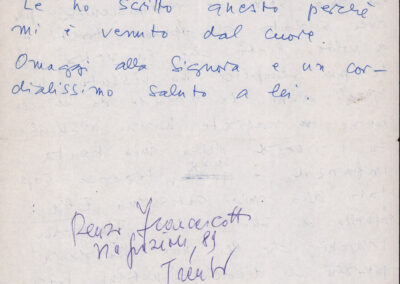 Le ho scritto questo perché
mi è venuto dal cuore.
Omaggi alla Signora e un cor-
dialissimo saluto a lei.
Renzo Francescotti
Via Grazioli, 89
Trento